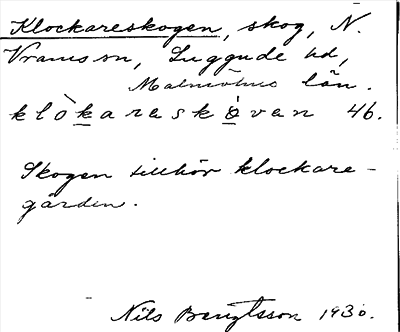 Klockareskogen, skog, N.
Vrams sn, Luggude hd,
Malmöhus län.
klòkareskóvan 46.
Skogen tillhör klockare-
gården.
Nils Bengtsson 1930.